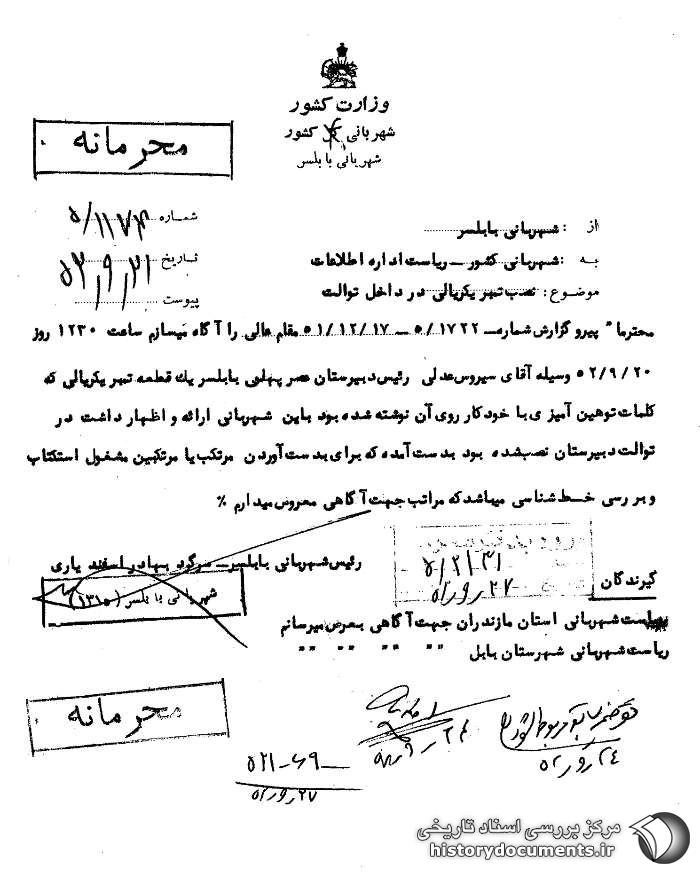 وزارت کشور
شهربانی کل کشور
شهربانی بابلسر
محرمانه
شماره ۵/۱۱۷۴
تاریخ ۵۲/۹/۲۱
پیوست
از : شهربانی بابلسر
به : شهربانی کشور ـ ریاست اداره اطلاعات
موضوع : نصب تمبر یکریالی در داخل توالت
محترما" پیرو گزارش شماره ۵/۱۷۲۲ ـ ۵۱/۱۲/۱۷ مقام عالی را آگاه میسازم ساعت ۱۲۳۰ روز
۵۲/۹/۲۰ وسیله آقای سیروس عدلی رئیس دبیرستان عصر پهلوی بابلسر یک قطعه تمبر یکریالی که
کلمات توهین آمیزی با خودکار روی آن نوشته شده بود باین شهربانی ارائه و اظهار داشت در
توالت دبیرستان نصب شده بود بدست آمده که برای بدست آوردن مرتکب یا مرتکبین مشغول استکتاب
و بررسی خط شناسی میباشد که مراتب جهت آگاهی معروض میدارم ٪
رئیس شهربانی بابلسر ـ سرگرد بهادر اسفندیاری
شهربانی بابلسر (۱۳۱۵)
گیرندگان
ریاست شهربانی استان مازندران جهت آگاهی بعرض میرسانم
ریاست شهربانی شهرستان بابل " " " "
محرمانه
مرکز بررسی اسناد تاریخی
historydocuments.ir